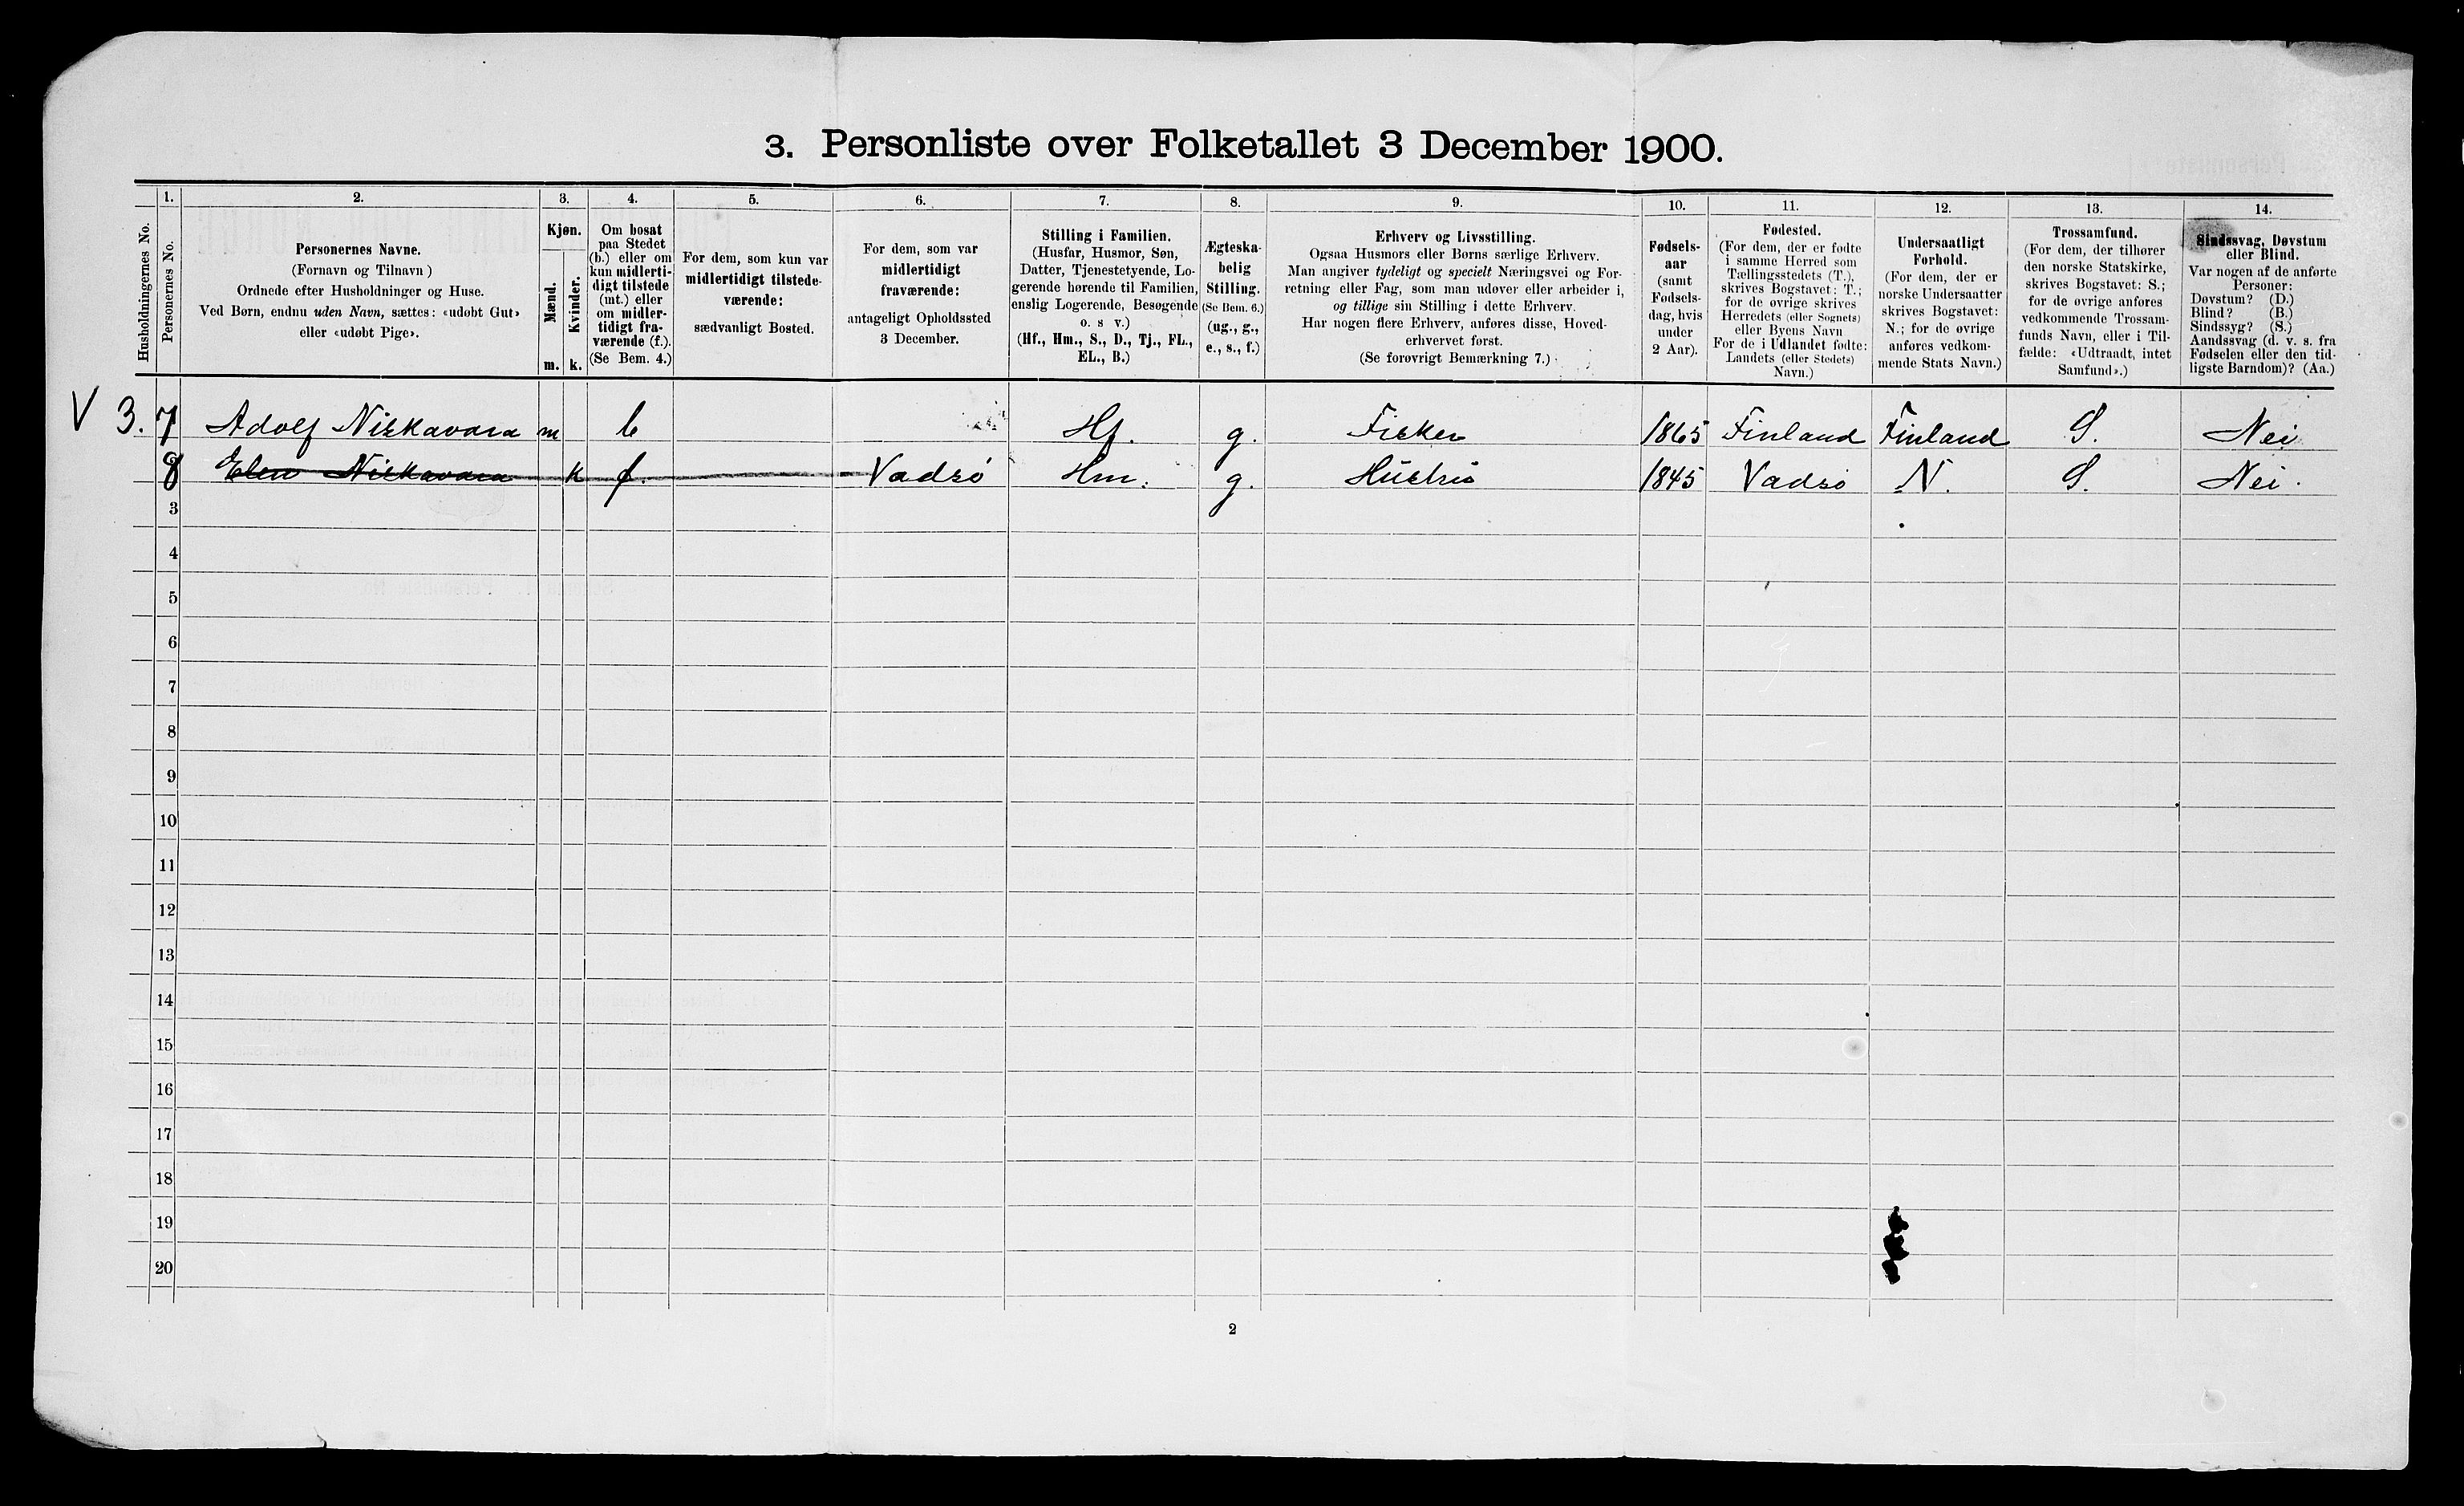 3. Personliste over Folketallet 3 December 1900.
Husholdningernes No.
1.
Personernes No.
2.
Personernes Navne.
(Fornavn og Tilnavn)
Ordnede efter Husholdninger og Huse.
Ved Børn, endnu uden Navn, sættes: «udøbt Gut»
eller «udøbt Pige».
3.
Kjøn.
Mænd.
Kvinder.
m. k.
4.
Om bosat
paa Stedet
(b.) eller om
kun midlerti-
digt tilstede
(mt.) eller
om midler-
tidigt fra-
værende (f.).
(Se Bem. 4.)
5.
For dem, som kun var
midlertidigt tilstede-
værende:
sædvanligt Bosted.
6.
For dem, som var
midlertidigt
fraværende:
antageligt Opholdssted
3 December.
7.
Stilling i Familien.
(Husfar, Husmor, Søn,
Datter, Tjenestetyende, Lo-
gerende hørende til Familien,
enslig Logerende, Besøgende
o. s v.)
(Hf., Hm., S., D., Tj., FL.,
EL., B.)
8.
Ægteska-
belig
Stilling.
(Se Bem. 6.)
(ug., g.,
e., s., f.)
9.
Erhverv og Livsstilling.
Ogsaa Husmors eller Børns særlige Erhverv.
Man angiver tydeligt og specielt Næringsvei og For-
retning eller Fag, som man udøver eller arbeider i,
og tillige sin Stilling i dette Erhverv.
Har nogen flere Erhverv, anføres disse, Hoved-
erhvervet først.
(Se forøvrigt Bemærkning 7.)
10.
Fødsels-
aar
(samt
Fødsels-
dag, hvis
under
2 Aar).
11.
Fødested.
(For dem, der er fødte
i samme Herred som
Tællingsstedets (T.),
skrives Bogstavet: T.;
for de øvrige skrives
Herredets (eller Sognets)
eller Byens Navn
For de i Udlandet fødte:
Landets (eller Stedets)
Navn.)
12.
Undersaatligt
Forhold.
(For dem, der er
norske Undersaatter
skrives Bogstavet:
N.; for de øvrige
anføres vedkom-
mende Stats Navn.)
13.
Trossamfund.
(For dem, der tilhører
den norske Statskirke,
skrives Bogstavet: S.;
for de øvrige anføres
vedkommende Trossam-
funds Navn, eller i Til-
fælde: «Udtraadt, intet
Samfund».)
14.
Sindssvag, Døvstum
eller Blind.
Var nogen af de anførte
Personer:
Døvstum? (D.)
Blind? (B.)
Sindssyg? (S.)
Aandssvag (d. v. s. fra
Fødselen eller den tid-
ligste Barndom)? (Aa.)
V 3. 7 Adolf Niskavara m b Hf. g. Fisker 1865 Finland Finland S. Nei
8 Elen Niskavara k f. Vadsö Hm. g. Hüstrü 1845 Vadsö N. S. Nei.
3
4
5
6
7
8
9
10
11
12
13
14
15
16
17
18
19
20
2